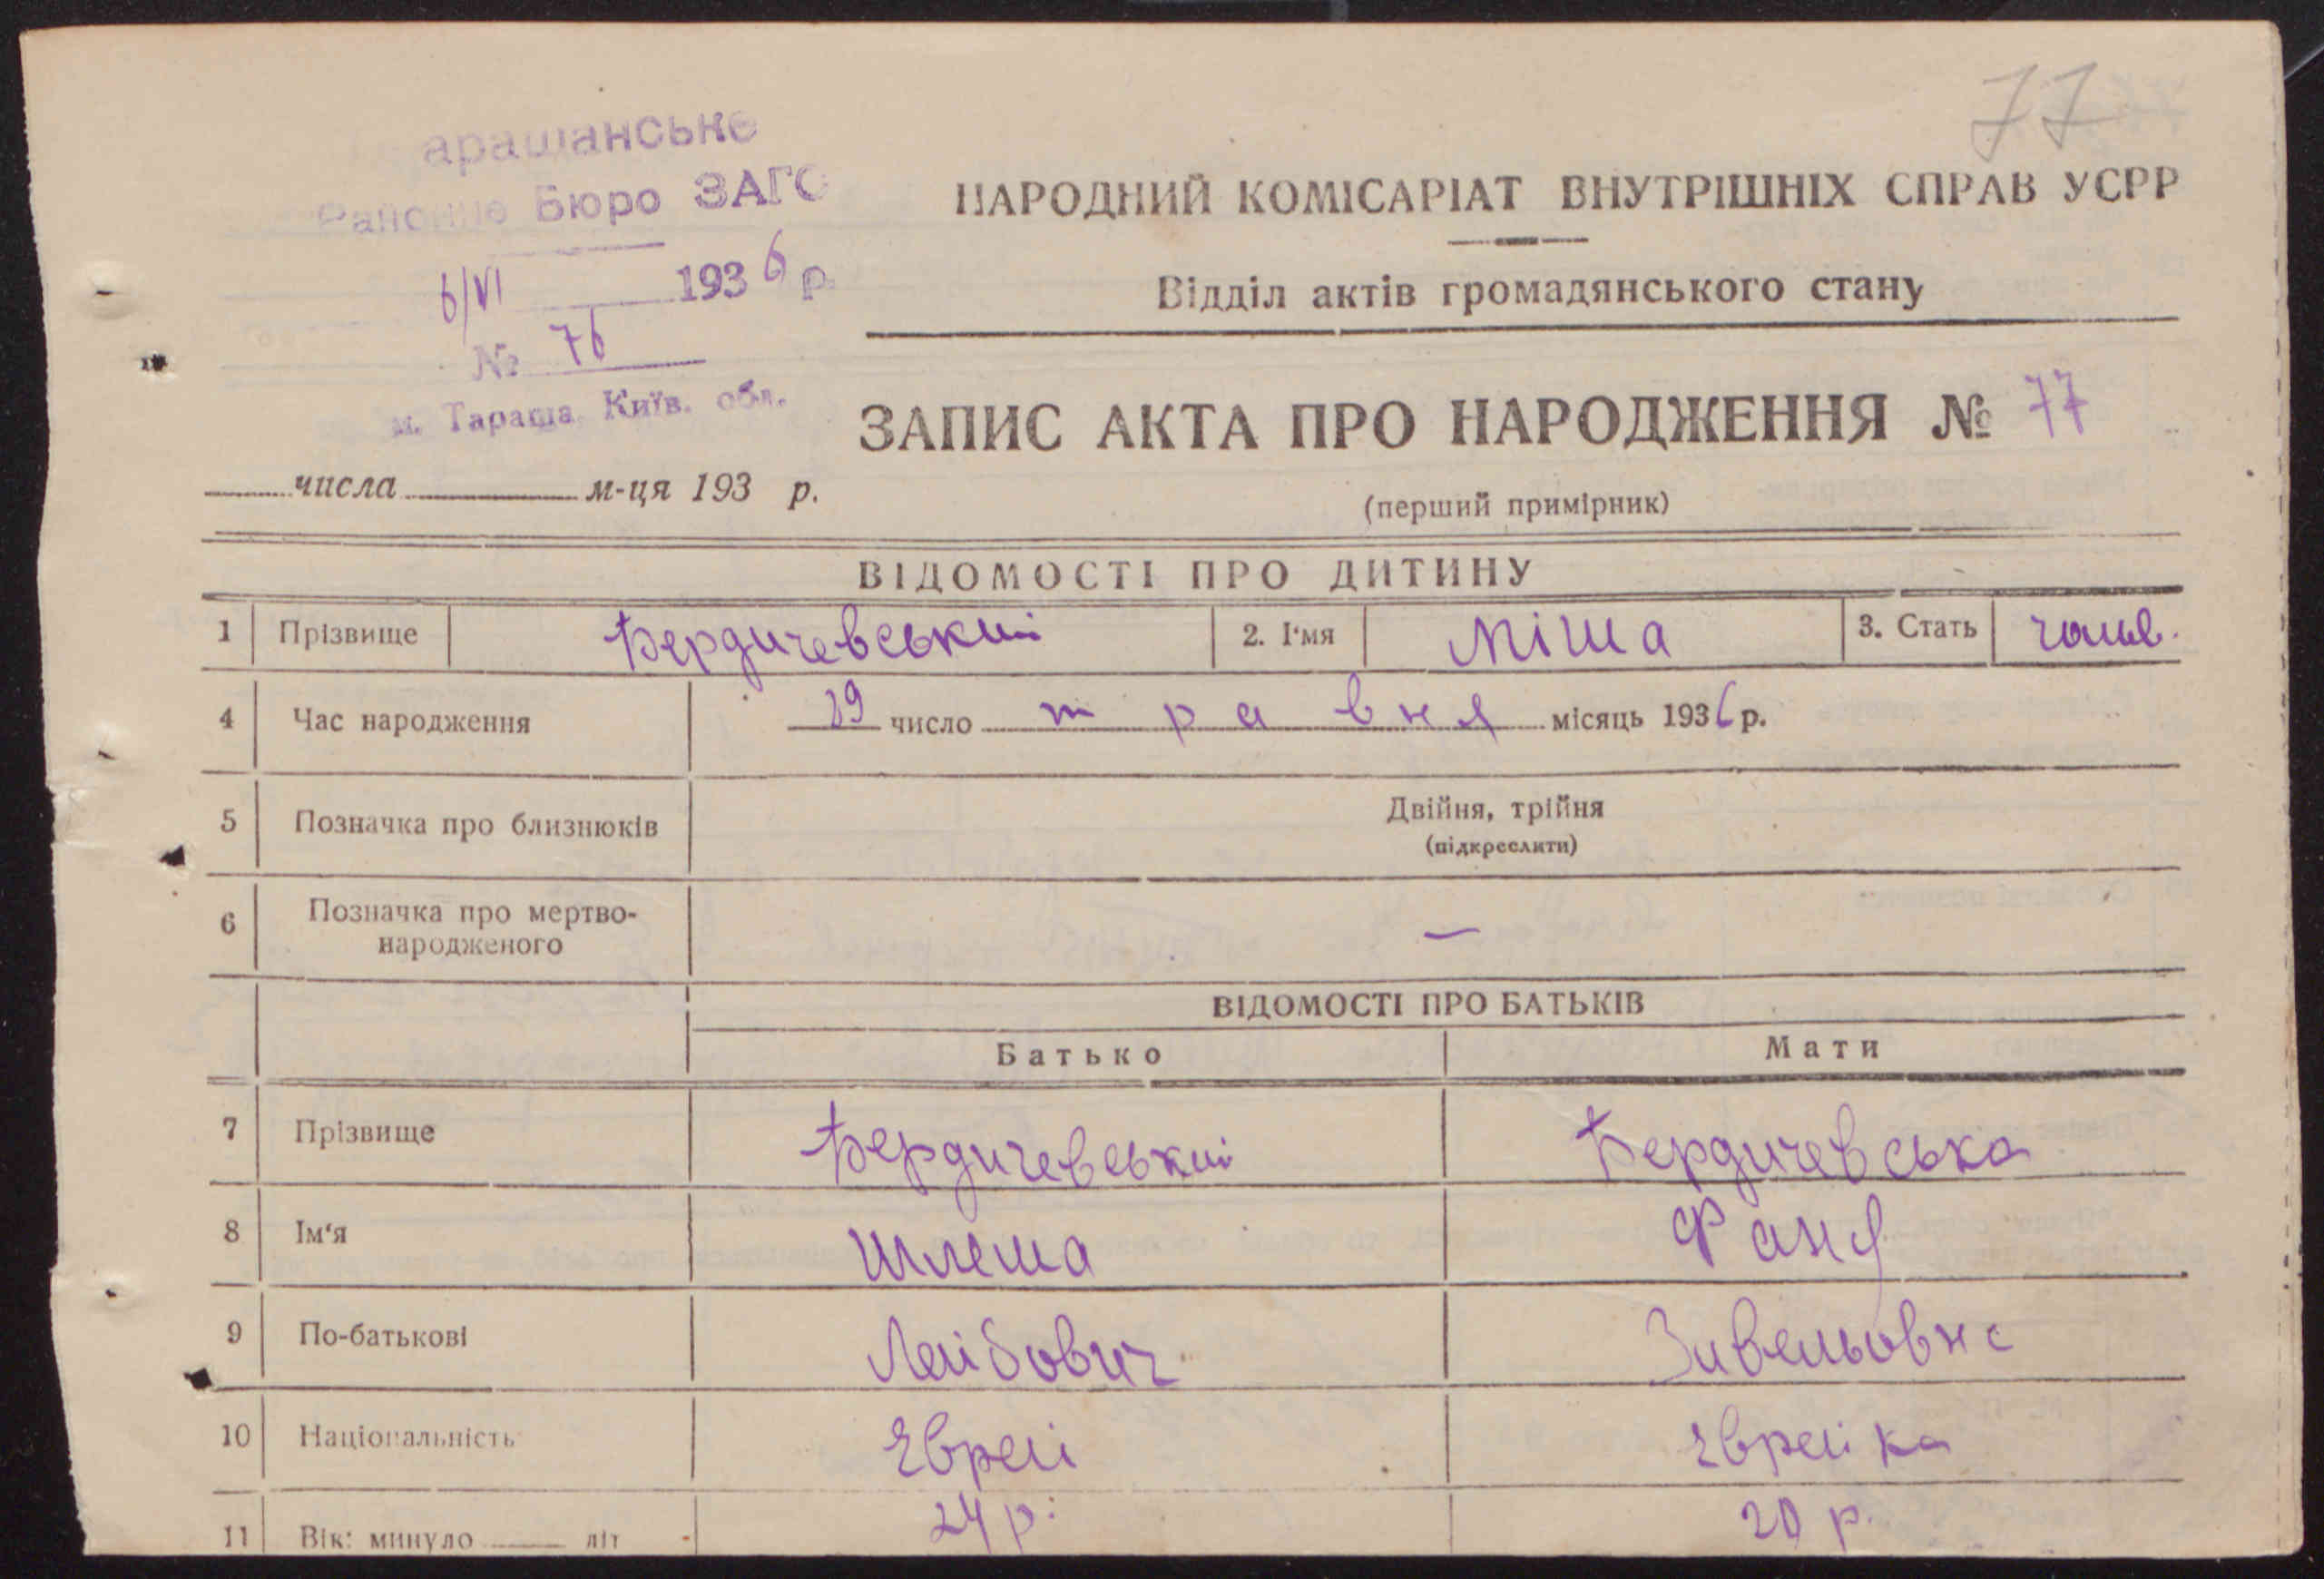 77
арашанське
Районне Бюро ЗАГС
6/VI 1936 р.
№ 76
м. Тараща Київ. обл.
НАРОДНИЙ КОМІСАРІАТ ВНУТРІШНІХ СПРАВ УСРР
Відділ актів громадянського стану
ЗАПИС АКТА ПРО НАРОДЖЕННЯ № 77
числа м-ця 193 р.
(перший примірник)
ВІДОМОСТІ ПРО ДИТИНУ
1 Прізвище Бердичевський 2. І'мя Міша 3. Стать чолов.
4 Час народження 29 число травня місяць 1936 р.
5 Позначка про близнюків Двійня, трійня
(підкреслити)
6 Позначка про мертво-
народженого —
ВІДОМОСТІ ПРО БАТЬКІВ
Батько Мати
7 Прізвище Бердичевський Бердичевська
8 Ім'я Шлема Фаня
9 По-батькові Лейбович Зивельовна
10 Національність Єврей Єврейка
11 Вік: минуло літ 24 р. 20 р.